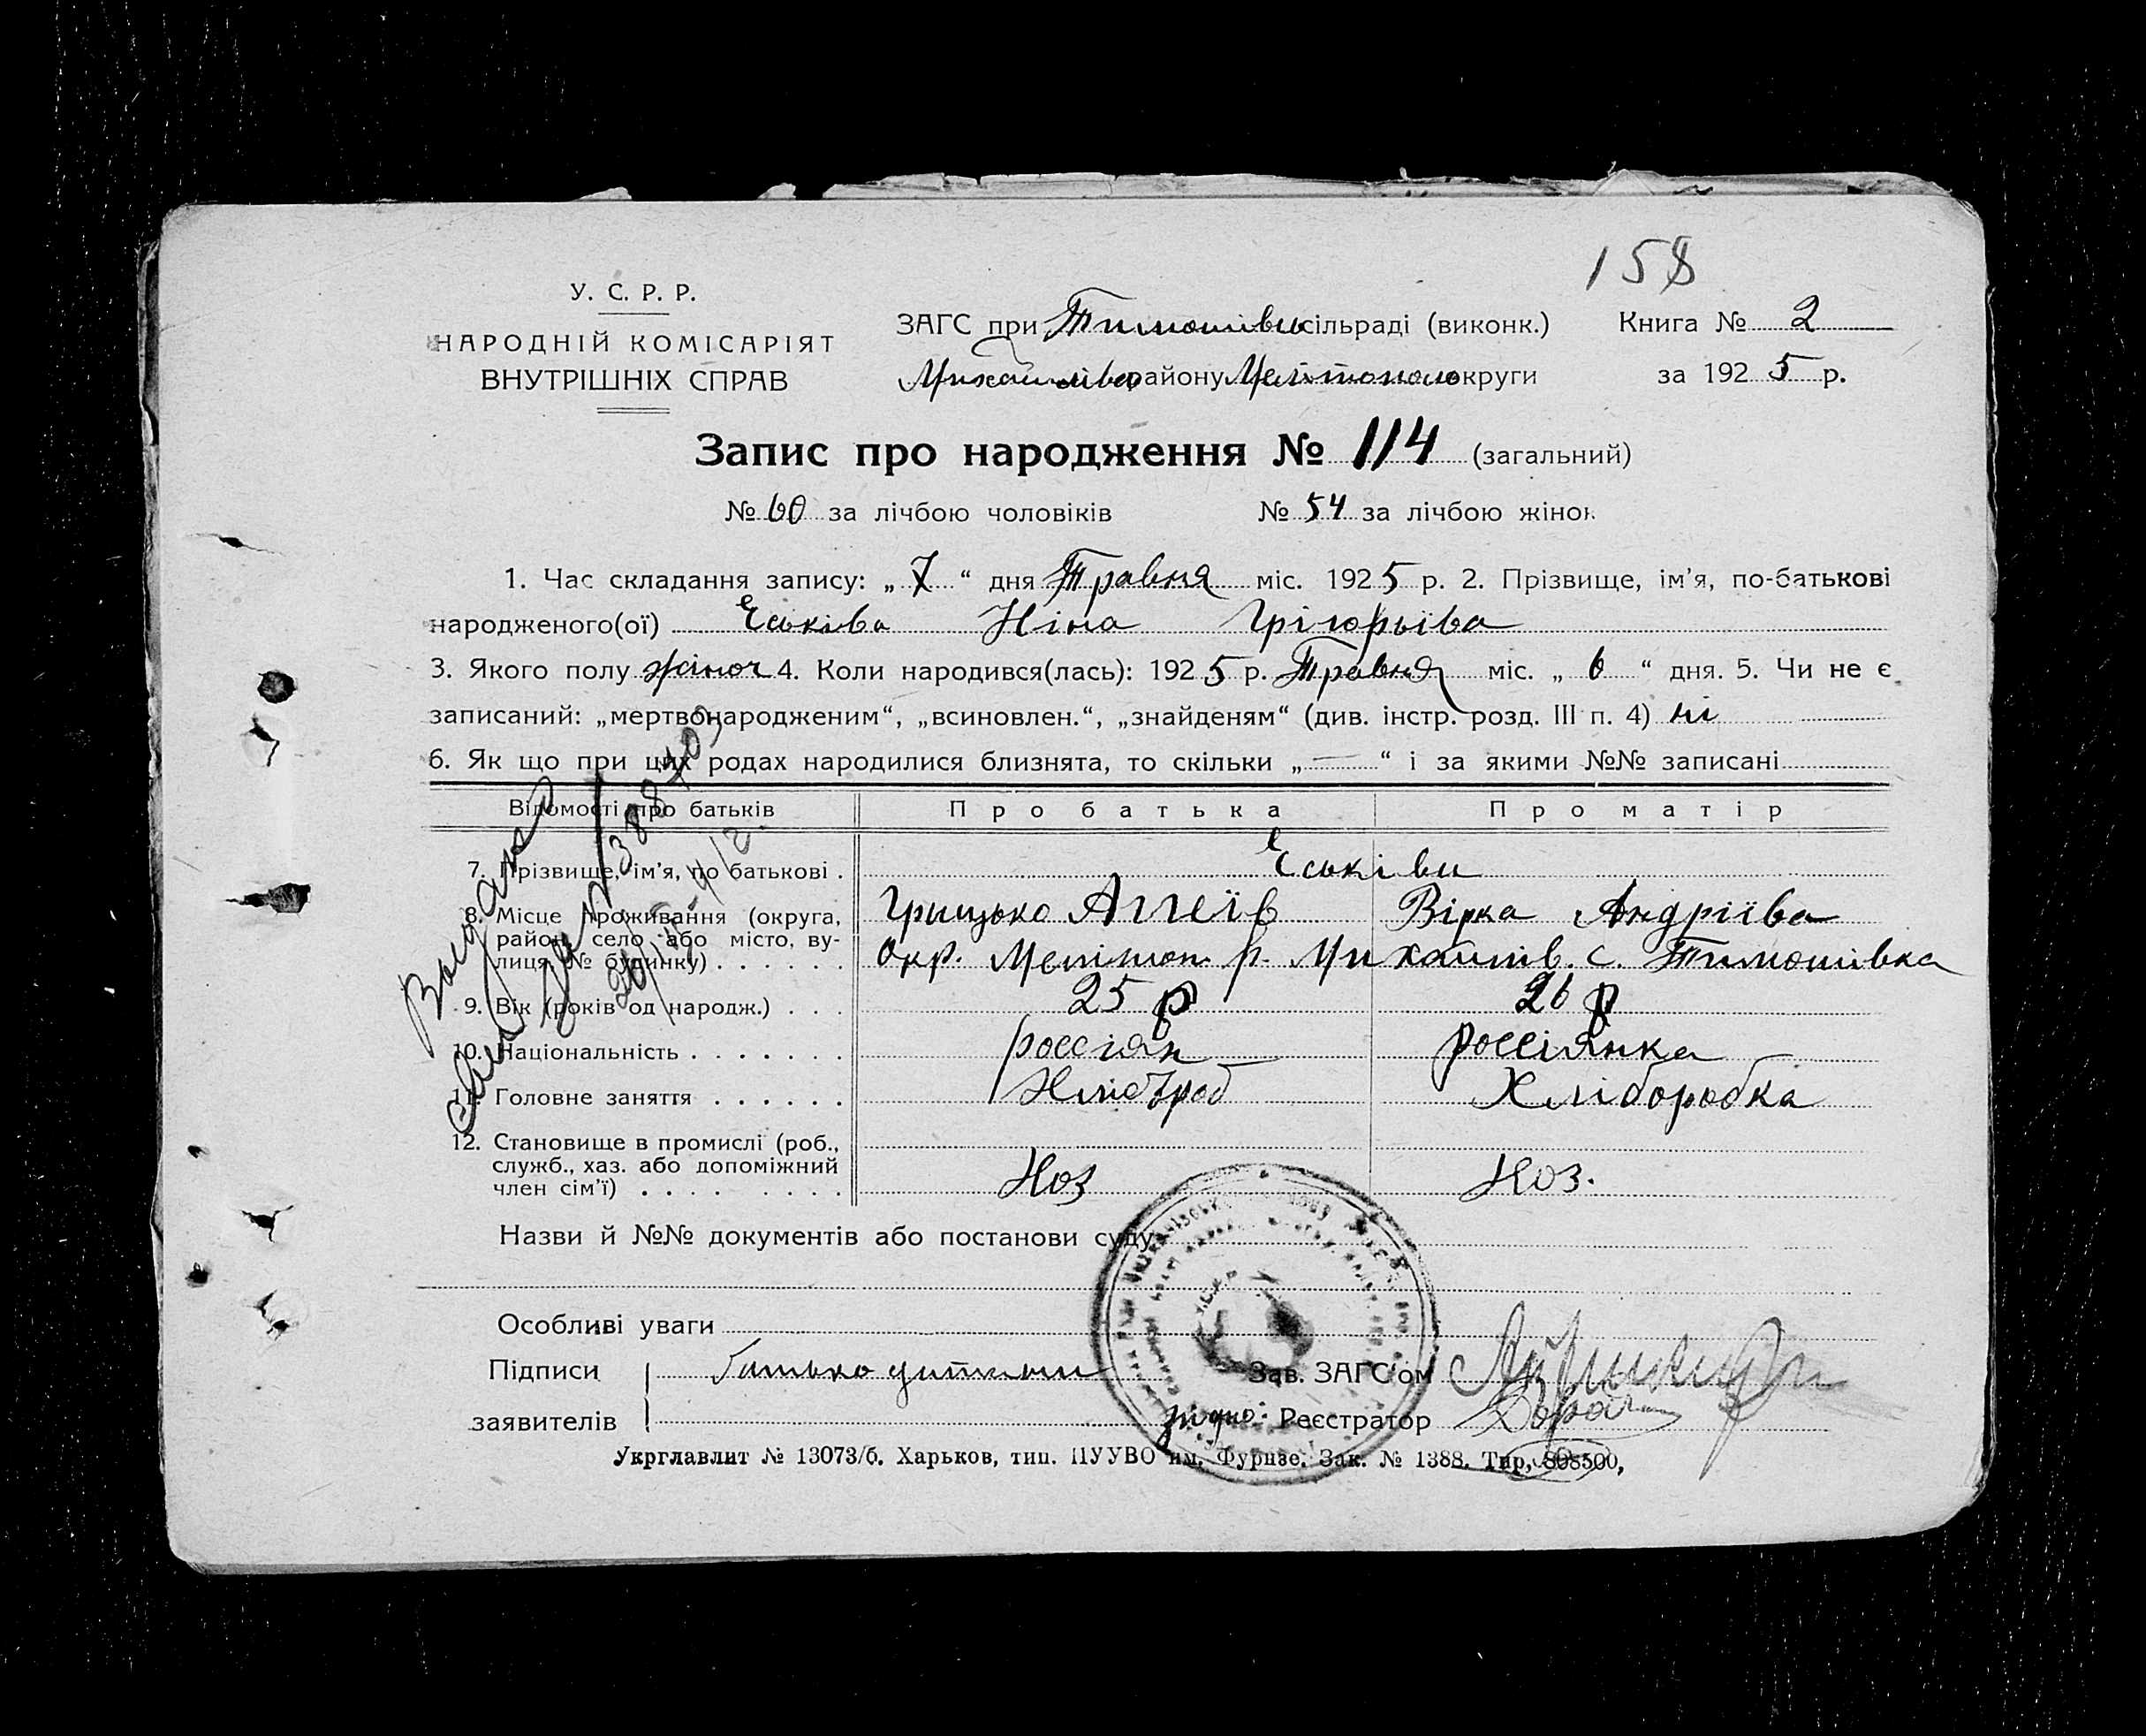 158
У. С. Р. Р.
НАРОДНІЙ КОМІСАРІЯТ
ВНУТРІШНІХ СПРАВ
ЗАГС при Тимошівськ сільраді (виконк.)
Михайлівськ району Мелітополь округи
Книга № 2
за 1925 р.
Запис про народження № 114 (загальний)
№ 60 за лічбою чоловіків № 54 за лічбою жінок
1. Час складання запису: „ 7 “ дня Травня міс. 1925 р. 2. Прізвище, ім’я, по-батькові
народженого(ої) Єськіва Ніна Грігорьіва
3. Якого полу жіноч 4. Коли народився(лась): 1925 р. Травня міс. „ 6 “ дня. 5. Чи не є
записаний: „мертвонародженим“, „всиновлен.“, „знайденям“ (див. інстр. розд. III п. 4) ні
6. Як що при цих родах народилися близнята, то скільки „ — “ і за якими №№ записані
Відомості про батьків Про батька Про матір
7. Прізвище, ім’я, по батькові . Єськіви
Грицько Аггеїв Вірка Андріївa
8. Місце проживання (округа,
район, село або місто, ву-
лиця, № будинку) . . . . . . Окр. Мелітоп. р. Михайлів. с. Тимошівка
9. Вік (років од народж.) . . . 25 р 26 р
10. Національність . . . . . . . россіян россіянка
11. Головне заняття . . . . . . Хлібороб Хліборобка
12. Становище в промислі (роб.,
служб., хаз. або допоміжний
член сім’ї) . . . . . . . . Хоз Хоз.
Выдано
Назви й №№ документів або постанови суду
Особливі уваги
Підписи батько дитини Зав. ЗАГС’ом
заявителів згідно: Реєстратор
Укрглавлит № 13073/б. Харьков, тип. ПУУВО им. Фрунзе. Зак. № 1388. Тир. 808500,